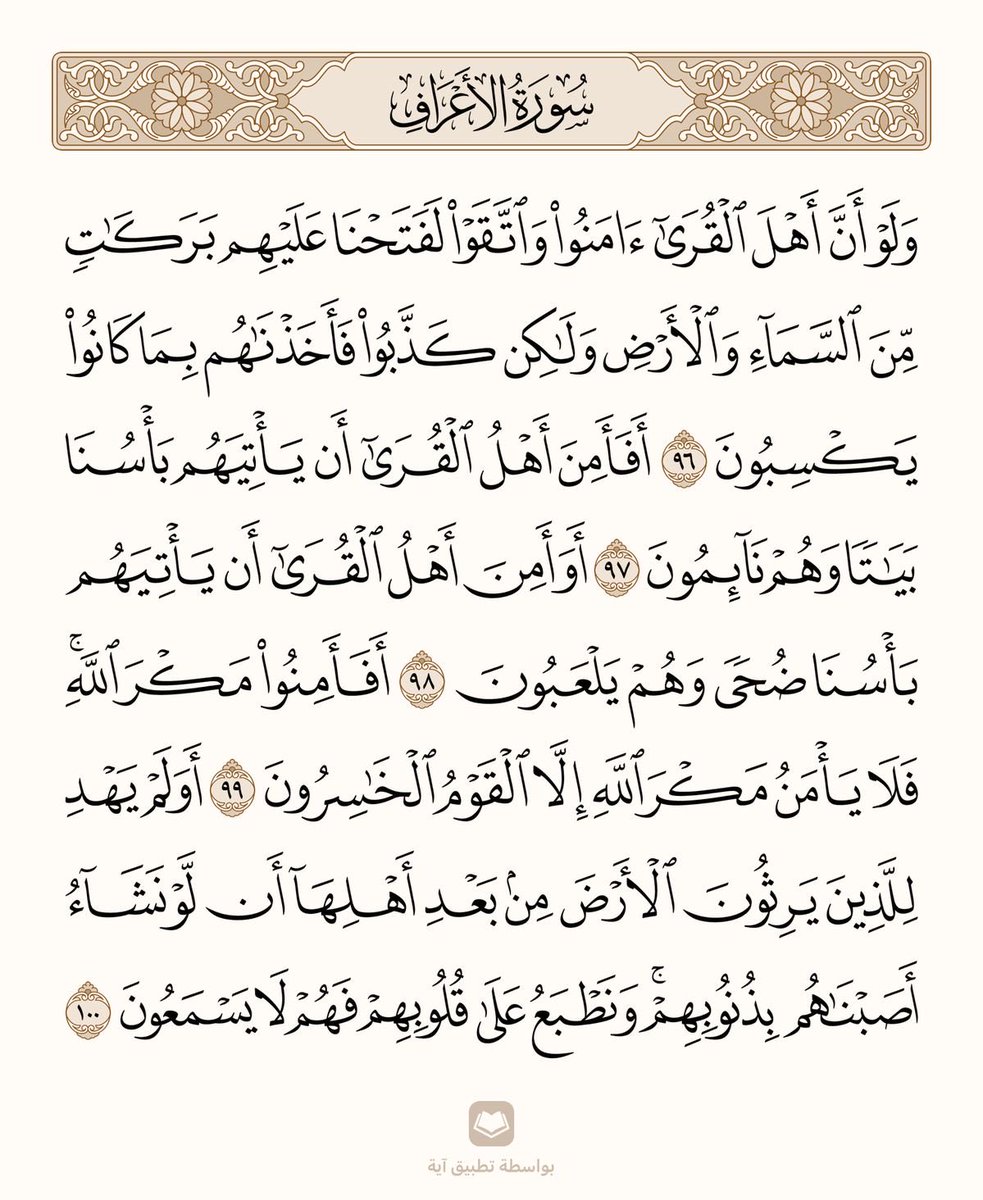 سُورَةُ الأَعْرَافِ
وَلَوْ أَنَّ أَهْلَ ٱلْقُرَىٰٓ ءَامَنُوا۟ وَٱتَّقَوْا۟ لَفَتَحْنَا عَلَيْهِم بَرَكَٰتٍ
مِّنَ ٱلسَّمَآءِ وَٱلْأَرْضِ وَلَٰكِن كَذَّبُوا۟ فَأَخَذْنَٰهُم بِمَا كَانُوا۟
يَكْسِبُونَ ٩٦ أَفَأَمِنَ أَهْلُ ٱلْقُرَىٰٓ أَن يَأْتِيَهُم بَأْسُنَا
بَيَٰتًا وَهُمْ نَآئِمُونَ ٩٧ أَوَأَمِنَ أَهْلُ ٱلْقُرَىٰٓ أَن يَأْتِيَهُم
بَأْسُنَا ضُحًى وَهُمْ يَلْعَبُونَ ٩٨ أَفَأَمِنُوا۟ مَكْرَ ٱللَّهِ ۚ
فَلَا يَأْمَنُ مَكْرَ ٱللَّهِ إِلَّا ٱلْقَوْمُ ٱلْخَٰسِرُونَ ٩٩ أَوَلَمْ يَهْدِ
لِلَّذِينَ يَرِثُونَ ٱلْأَرْضَ مِنۢ بَعْدِ أَهْلِهَآ أَن لَّوْ نَشَآءُ
أَصَبْنَٰهُم بِذُنُوبِهِمْ ۚ وَنَطْبَعُ عَلَىٰ قُلُوبِهِمْ فَهُمْ لَا يَسْمَعُونَ ١٠٠
بواسطة تطبيق آية